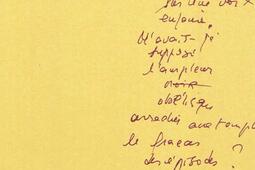 sur une voix
enjouée.
N'avait-je
supposé
l'ampleur
noire
obélisque
arrachée au temple
le fracas
des épisodes ?